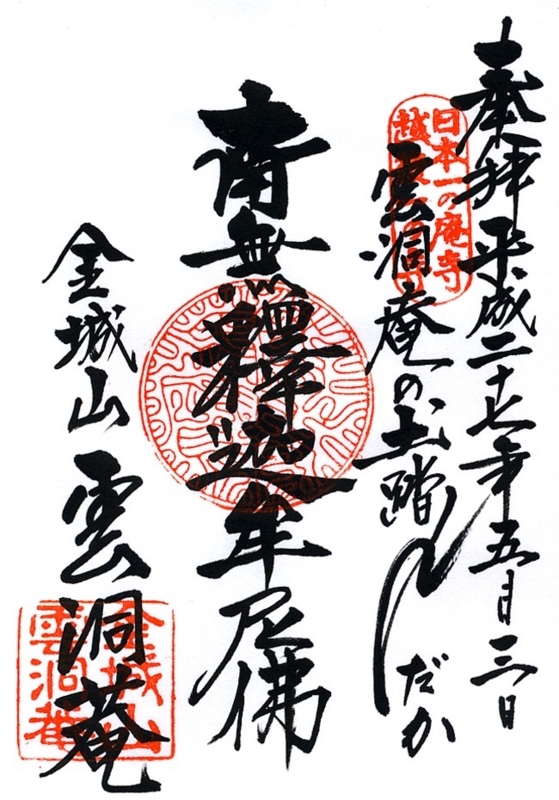 奉拝 平成二十七年五月三日
日本一の庵寺
雲洞庵の土踏んだか
南無釋迦牟尼佛
金城山 雲洞菴
金城山
雲洞菴